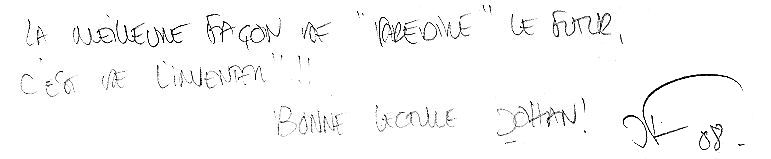 LA MEILLEURE FAÇON DE "PREDIRE" LE FUTUR,
C'EST DE L'INVENTER"!!
BONNE LECTURE JOHAN! 08.